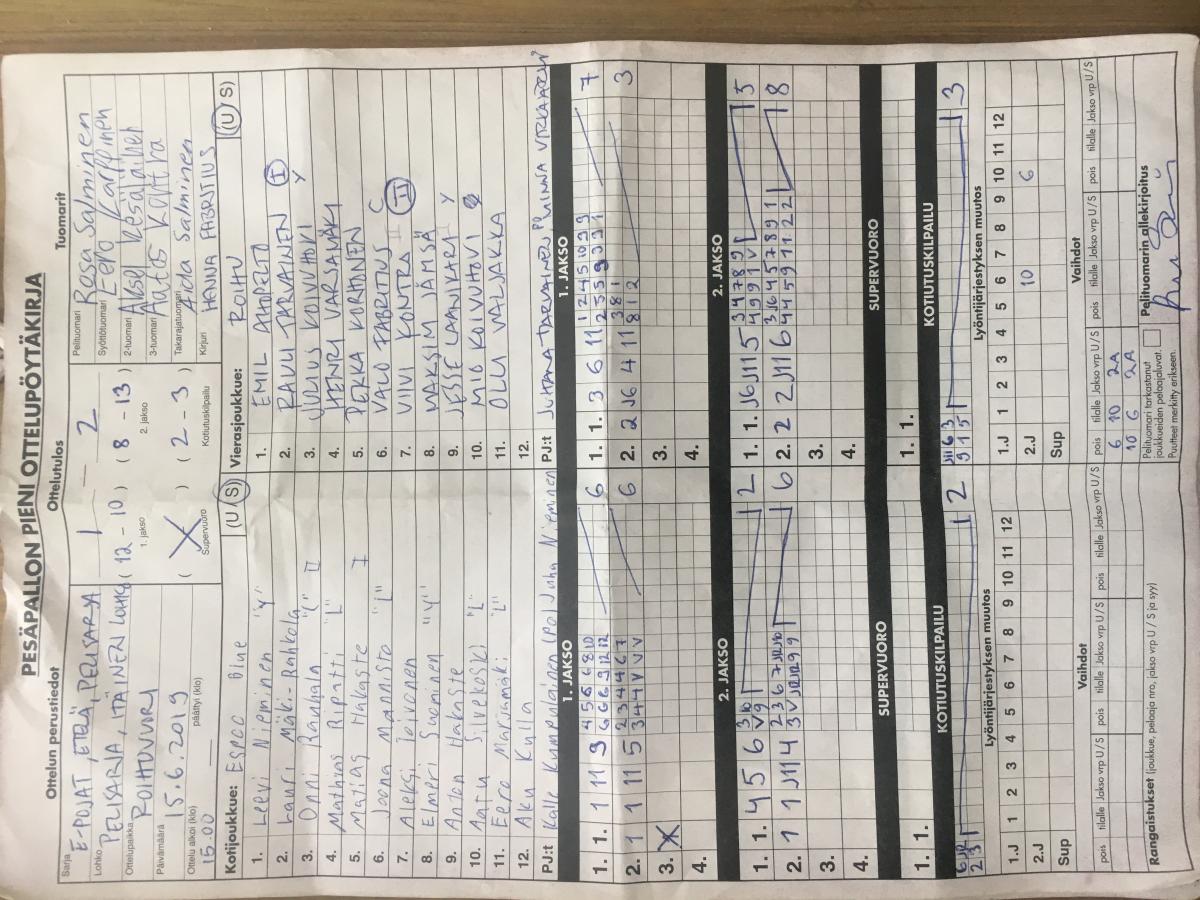 PESÄPALLON PIENI OTTELUPÖYTÄKIRJA
Ottelun perustiedot
Sarja E-POJAT, ETELÄ, PELISARJA
Lohko PELISARJA, ITÄINEN LOHKO
Ottelupaikka ROIHUVUORI
Päivämäärä 15.6.2019
Ottelu alkoi (klo) 15.00 päättyi (klo)
Ottelutulos
1 - 2
(12 - 10) (8 - 13)
1. jakso 2. jakso
( X ) (2 - 3)
Supervuoro Kotiutuskilpailu
Tuomarit
Pelituomari Roosa Salminen
Syöttötuomari Eero Karppinen
2-tuomari Aksel Kesäläinen
3-tuomari Aatos Kontra
Takarajatuomari Aida Salminen
Kirjuri HANNA FABRITIUS
Kotijoukkue: ESPOO Blue (U / S)
1. Leevi Nieminen "Y"
2. Lauri Mäki-Rahkola
3. Onni Rannaln "L" II
4. Mathias Ripatti "L"
5. Matias Hakaste I
6. Joona Mannisto "L"
7. Aleksi Toivonen
8. Elmeri Suominen "Y"
9. Anton Hakaste
10. Aatu Silvekoski "L"
11. Eero Marjamäki "L"
12. Aku Kulla
PJ:t Kalle Kumpulainen (PO) Juha Nieminen
Vierasjoukkue: ROIHU (U / S)
1. EMIL AHOPELTO
2. RAULI TARVAINEN I
3. JULIUS KOIVUHOVI Y
4. HENRI VARSAMÄKI
5. PEKKA KORHONEN
6. VALO FABRITIUS C
7. VIIVI KONTRA II
8. MAKSIM JÄMSÄ
9. JESSE LAANIKARI Y
10. MIO KOIVUHOVI
11. OLLI VALJAKKA
12.
PJ:t JUHANA TARVAINEN, MINNA VIRKAJÄRVI
1. JAKSO
1. 1. 1 11 9 4 5 5 6 8 10 6
6 6 6 9 12 12
2. 1 11 5 2 3 4 4 6 7 6
3 4 4 V V V
3. X
4.
1. JAKSO
1. 1. 3 6 11 1 2 4 5 10 9 9 7
2 5 5 9 3 9 1
2. 2 J6 4 11 3 8 1 3
8 1 2
3.
4.
2. JAKSO
1. 1. 4 5 6 3 10 2
V 9
2. 1 J11 4 2 3 6 7 J12 J10 6
3 V J2 J12 9 9
3.
4.
2. JAKSO
1. 1. J6 J11 5 3 4 7 8 9 5
4 5 9 9 1 V
2. 2 2 J11 6 3 J6 4 5 7 8 9 1 8
4 4 5 9 11 1 2 2
3.
4.
SUPERVUORO
1. 1.
SUPERVUORO
1. 1.
KOTIUTUSKILPAILU
2 3 1 2
KOTIUTUSKILPAILU
J11 6 3 3
9 1 5
Lyöntijärjestyksen muutos
1.J 1 2 3 4 5 6 7 8 9 10 11 12
2.J
Sup
Lyöntijärjestyksen muutos
1.J 1 2 3 4 5 6 7 8 9 10 11 12
2.J 10 6
Sup
Vaihdot
pois tilalle Jakso vrp U / S pois tilalle Jakso vrp U / S pois tilalle Jakso vrp U / S
Vaihdot
pois tilalle Jakso vrp U / S pois tilalle Jakso vrp U / S pois tilalle Jakso vrp U / S
6 10 2A
10 6 2A
Rangaistukset (joukkue, pelaaja nro, jakso vrp U / S ja syy)
Pelituomari tarkastanut
joukkueiden pelaajaluvat.
Puutteet merkitty erikseen.
Pelituomarin allekirjoitus